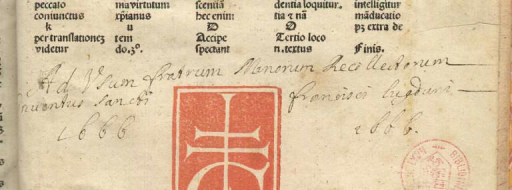 peccato ma virtutum scentia dentia loquitur. intelligitur
coniunctus xp̃ianus hec enim tia ⁊ nã mãducatio
k u D O p3 extra de
per translationez tem Accipe Tertio loco
videtur do.3°. spectant n.textus Finis.
Ad Vsum fratrum Minorum Recollectorum
conventus Sancti francisci lugduni
1666 1666.